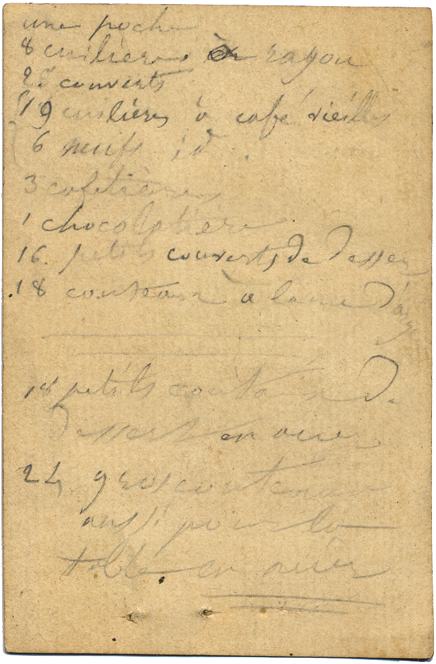 une poche
8 cuilieres à ragou
25 couverts
19 cuilières à café vieilles
6 neufs id.
3 cafetières
1 chocolatiere
16 petits couverts de desser
18 couteaux à lame d'arg
18 petits couteaux de
dessert en acier
24 gros couteaux
aussi pour la
table en acier